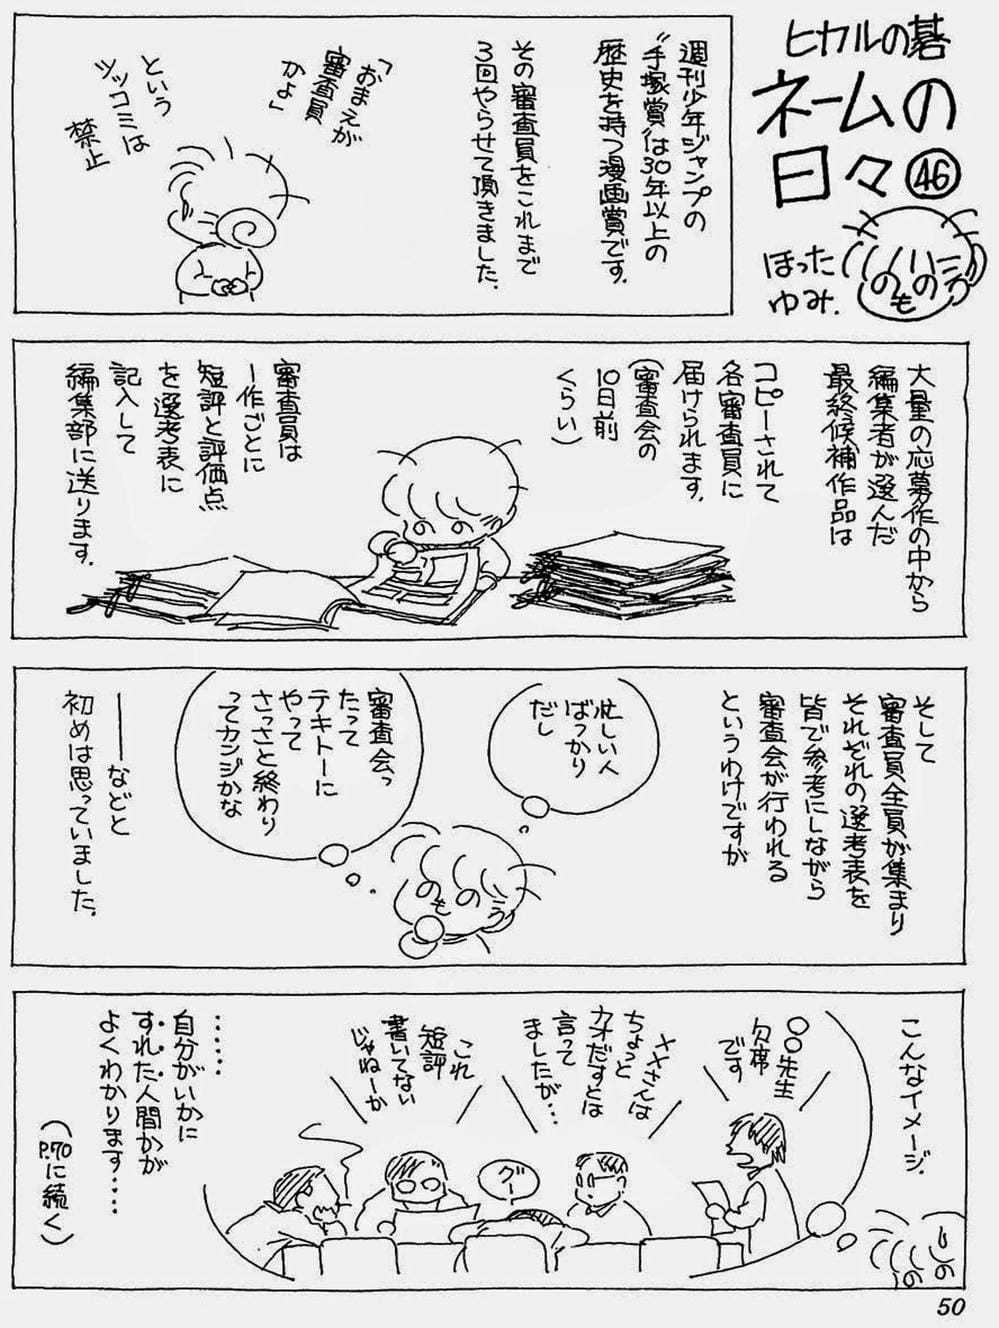 ヒカルの碁
ネームの
日々㊻
ほった
ゆみ.
週刊少年ジャンプの
〝手塚賞〟は30年以上の
歴史を持つ漫画賞です.
その審査員をこれまで
3回やらせて頂きました.
「おまえが
審査員
かよ」
という
ツッコミは
禁止
大量の応募作の中から
編集者が選んだ
最終候補作品は
コピーされて
各審査員に
届けられます.
(審査会の
10日前
くらい)
審査員は
一作ごとに
短評と評価点
を選考表に
記入して
編集部に送ります.
そして
審査員全員が集まり
それぞれの選考表を
皆で参考にしながら
審査会が行われる
というわけですが
忙しい人
ばっかり
だし
審査会っ
たって
テキトーに
やって
さっさと終わり
ってカンジかな
――などと
初めは思っていました.
こんなイメージ.
○○先生
欠席
です
××さんは
ちょっと
カオだすとは
言って
ましたが…
グー
これ
短評
書いてない
じゃねーか
……
自分がいかに
すれた人間かが
よくわかります‥‥
(P.70に続く)
50